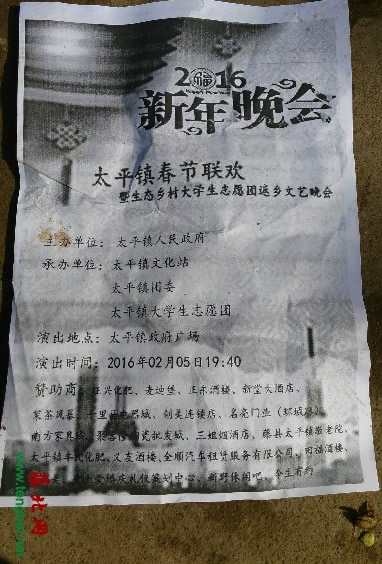 2016
新年晚会
太平镇春节联欢
暨生态乡村大学生志愿团返乡文艺晚会
主办单位：太平镇人民政府
承办单位：太平镇文化站
太平镇团委
太平镇大学生志愿团
演出地点：太平镇政府广场
演出时间：2016年02月05日19:40
赞助商：兴化肥、麦迪堡、正东酒楼、新堂大酒店、
茗茶风暴、一里电器城、剑美连锁店、名亮门业（环城路）、
南方家具城、陶瓷批发城、三姐烟酒店、藤县太平镇敬老院、
太平镇丰化肥、又友酒楼、全顺汽车租赁服务有限公司、田福酒楼、
庆礼仪策划中心、新野休闲吧、今生有约
藤北网